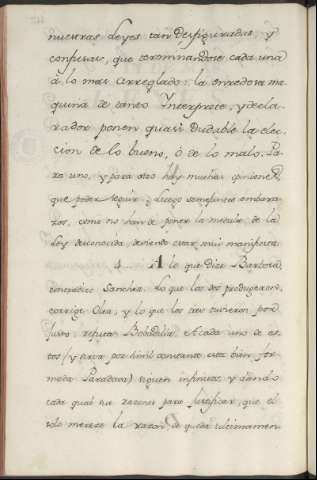 nuestras Leyes tan Desfiguradas, y
confusas, que terminandose cada una
à lo mas arreglado, la enredosa ma
quina de tanto Interprete, y decla-
rador ponen quasi dudable la elec-
cion de lo bueno, ó de lo malo. Pa
ra uno, y para otro hay muchas opiniones
que poder seguir; luego semejantes embara
zos, como no han de poner la medula de la
Ley desconocida, debiendo estar mui manifiesta.
4. A lo que Dice Barbosa,
contradice Sanchez. Lo que los dos produgeron,
corrige Olea, y lo que los tres tuvieron por
justo, refuta Bobadilla. A cada uno de es
tos (y sirva por simil constante esta bien for
mada Paradoxa) siguen infinitos, y dando
cada qual sus razones para justificar, que el
solo merece la razon de quedar ultimamen